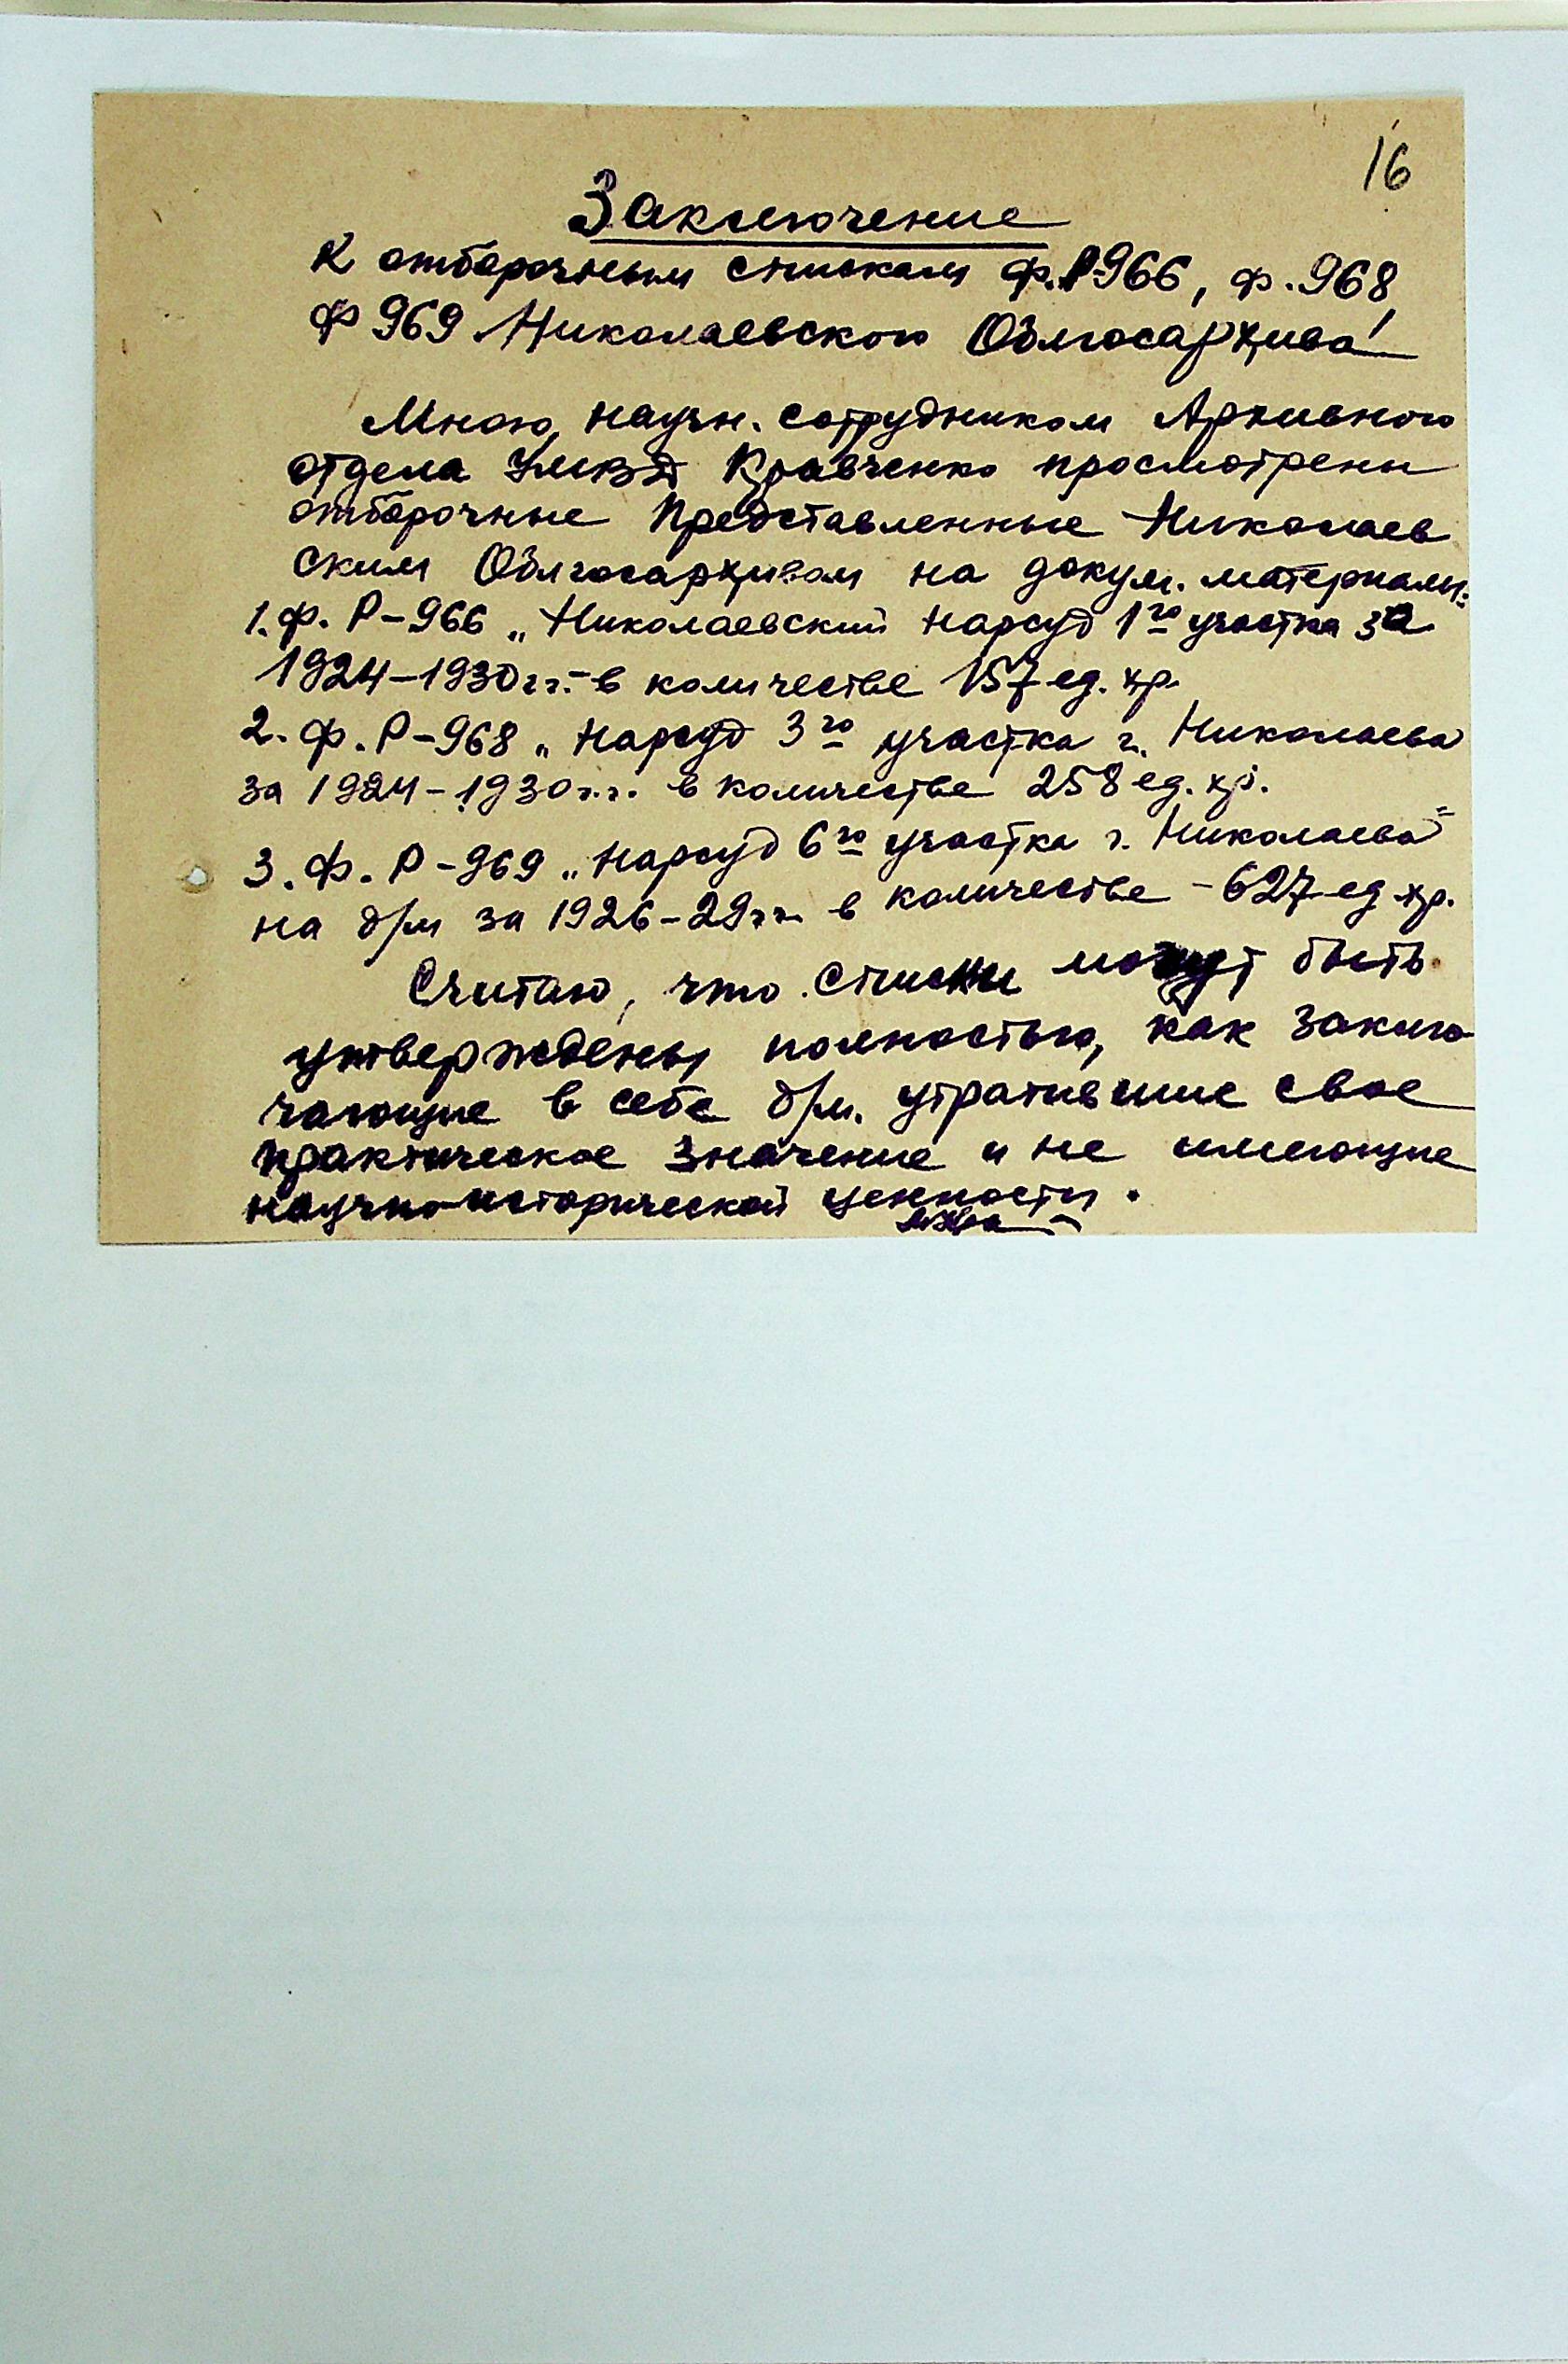 16
Заключение
К отборочным спискам ф.Р966, ф.968,
ф 969 Николаевского Облгосархива
Мною, научн. сотрудником Архивного
отдела УМВД Кравченко просмотрены
отборочные представленные Николаев
ским Облгосархивом на докум. материалы:
1. ф. Р-966 „Николаевский нарсуд 1го участка за
1924-1930гг.- в количестве 157 ед. хр.
2. ф. Р-968 „Нарсуд 3го участка г. Николаева
за 1924-1930г.г. в количестве 258 ед. хр.
3. Ф. Р-969 „Нарсуд 6го участка г. Николаева"
на д/м за 1926-29гг. в количестве - 627 ед хр.
Считаю, что списки могут быть
утверждены полностью, как заклю
чающие в себе д/м. утратившие свое
практическое значение и не имеющие
научно-исторической ценности.